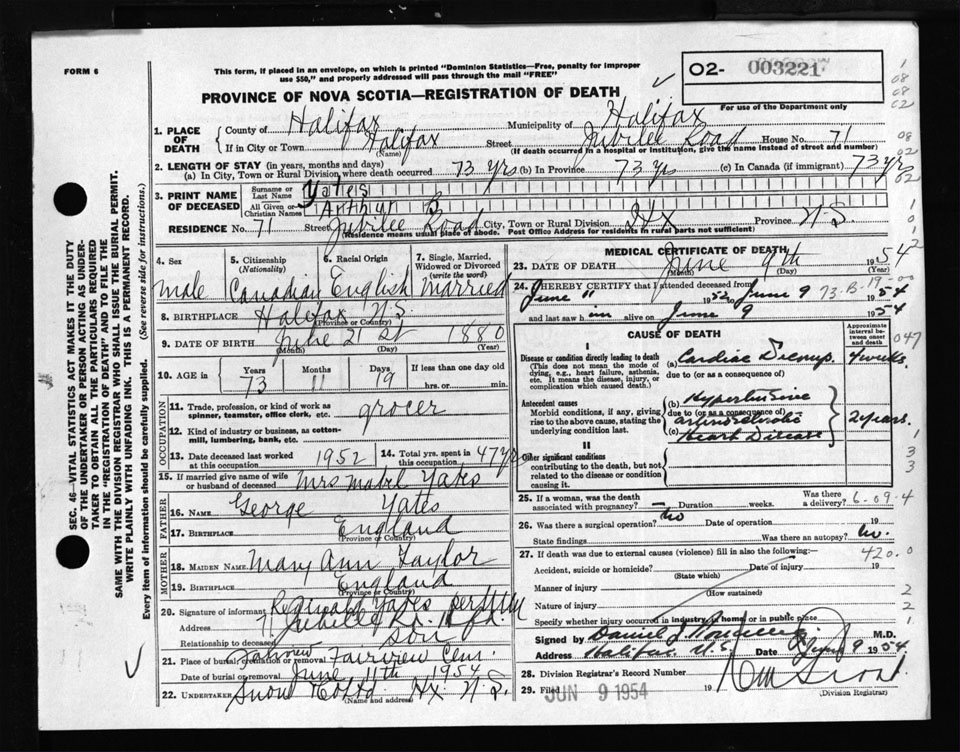 FORM 6
This form, if placed in an envelope, on which is printed "Dominion Statistics—Free, penalty for improper
use $50," and properly addressed will pass through the mail "FREE"
O2- 003221
For use of the Department only
PROVINCE OF NOVA SCOTIA—REGISTRATION OF DEATH
1. PLACE OF DEATH { County of Halifax Municipality of Halifax
If in City or Town Halifax (Name) Street Jubilee Road House No. 71
(If death occurred in a hospital or institution, give the name instead of street and number)
2. LENGTH OF STAY (in years, months and days)
(a) In City, Town or Rural Division where death occurred 73 yrs (b) In Province 73 yrs (c) In Canada (if immigrant) 73 yrs
3. PRINT NAME OF DECEASED { Surname or Last Name Yates
All Given or Christian Names Arthur B
RESIDENCE No. 71 Street Jubilee Road City, Town or Rural Division Hx Province N.S.
(Residence means usual place of abode. Post Office Address for residents in rural parts not sufficient)
4. Sex male
5. Citizenship (Nationality) Canadian
6. Racial Origin English
7. Single, Married, Widowed or Divorced (write the word) married
8. BIRTHPLACE Halifax N.S.
(Province or Country)
9. DATE OF BIRTH June 21st 1880
(Month) (Day) (Year)
10. AGE in { Years 73 Months 11 Days 19 If less than one day old
hrs. or min.
OCCUPATION
11. Trade, profession, or kind of work as spinner, teamster, office clerk, etc. grocer
12. Kind of industry or business, as cotton-mill, lumbering, bank, etc.
13. Date deceased last worked at this occupation 1952
14. Total yrs. spent in this occupation 47 yrs
15. If married give name of wife or husband of deceased Mrs Mabel Yates
FATHER
16. NAME George Yates
17. BIRTHPLACE England
(Province or Country)
MOTHER
18. MAIDEN NAME Mary Ann Taylor
19. BIRTHPLACE England
(Province or Country)
20. Signature of informant Reginald Yates per
Address 71 Jubilee Rd. Hfx.
Relationship to deceased son
21. Place of burial, cremation or removal Fairview Fairview Cem.
Date of burial or removal June 11th 1954
22. UNDERTAKER Snow & Co Ltd Hx N.S.
(Name and address)
MEDICAL CERTIFICATE OF DEATH
23. DATE OF DEATH June 9th 1954
(Month) (Day) (Year)
24. I HEREBY CERTIFY that I attended deceased from
June 11 1952 to June 9 1954
and last saw him alive on June 9 1954
CAUSE OF DEATH
Approximate interval between onset and death
I
Disease or condition directly leading to death (a) Cardiac Decomp. 4 weeks
(This does not mean the mode of dying, e.g., heart failure, asthenia, etc. It means the disease, injury, or complication which caused death.)
due to (or as a consequence of)
Antecedent causes (b) Hypertensive
Morbid conditions, if any, giving rise to the above cause, stating the underlying condition last.
due to (or as a consequence of)
(c) arteriosclerotic Heart Disease 2 years.
II
Other significant conditions
contributing to the death, but not related to the disease or condition causing it.
25. If a woman, was the death associated with pregnancy? — Duration weeks. Was there a delivery?
26. Was there a surgical operation? no Date of operation 19
State findings Was there an autopsy? no.
27. If death was due to external causes (violence) fill in also the following:
Accident, suicide or homicide? Date of injury 19
(State which)
Manner of injury
(How sustained)
Nature of injury
Specify whether injury occurred in industry, home, or in public place
Signed by Daniel M.D.
Address Halifax N.S. Date June 9 1954
28. Division Registrar's Record Number
29. Filed JUN 9 1954 19
(Division Registrar)
SEC. 46—VITAL STATISTICS ACT MAKES IT THE DUTY
OF THE UNDERTAKER OR PERSON ACTING AS UNDER-
TAKER TO OBTAIN ALL THE PARTICULARS REQUIRED
IN THE "REGISTRATION OF DEATH" AND TO FILE THE
SAME WITH THE DIVISION REGISTRAR WHO SHALL ISSUE THE BURIAL PERMIT.
WRITE PLAINLY WITH UNFADING INK. THIS IS A PERMANENT RECORD.
Every item of information should be carefully supplied. (See reverse side for instructions.)
1
08
08
02
09
02
02
73-B-19
047
6-09-4
420.0